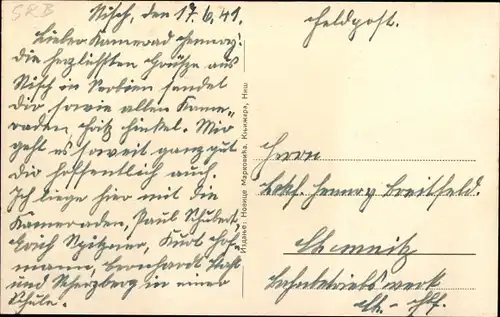 SRB
Nisch, den 17.6.41.
Lieber Kamerad Henry!
die herzlichsten Grüsse aus
Nisch in Serbien sendet
Dir, sowie allen Kame-
raden, Fritz Hinkel. Mir
geht es soweit ganz gut
Dir hoffentlich auch.
Ich liege hier mit die
Kameraden, Paul Schubert,
Erich Spitzner, Kurt Hof-
mann, Bernhardt
und Scherzberg in einer
Schule.
Издање: Новице Марковића, Књижара, Ниш
Feldpost.
Herrn
Henry Breitfeld.
Chemnitz
Bahnbetriebswerk
Ch. - Hf.